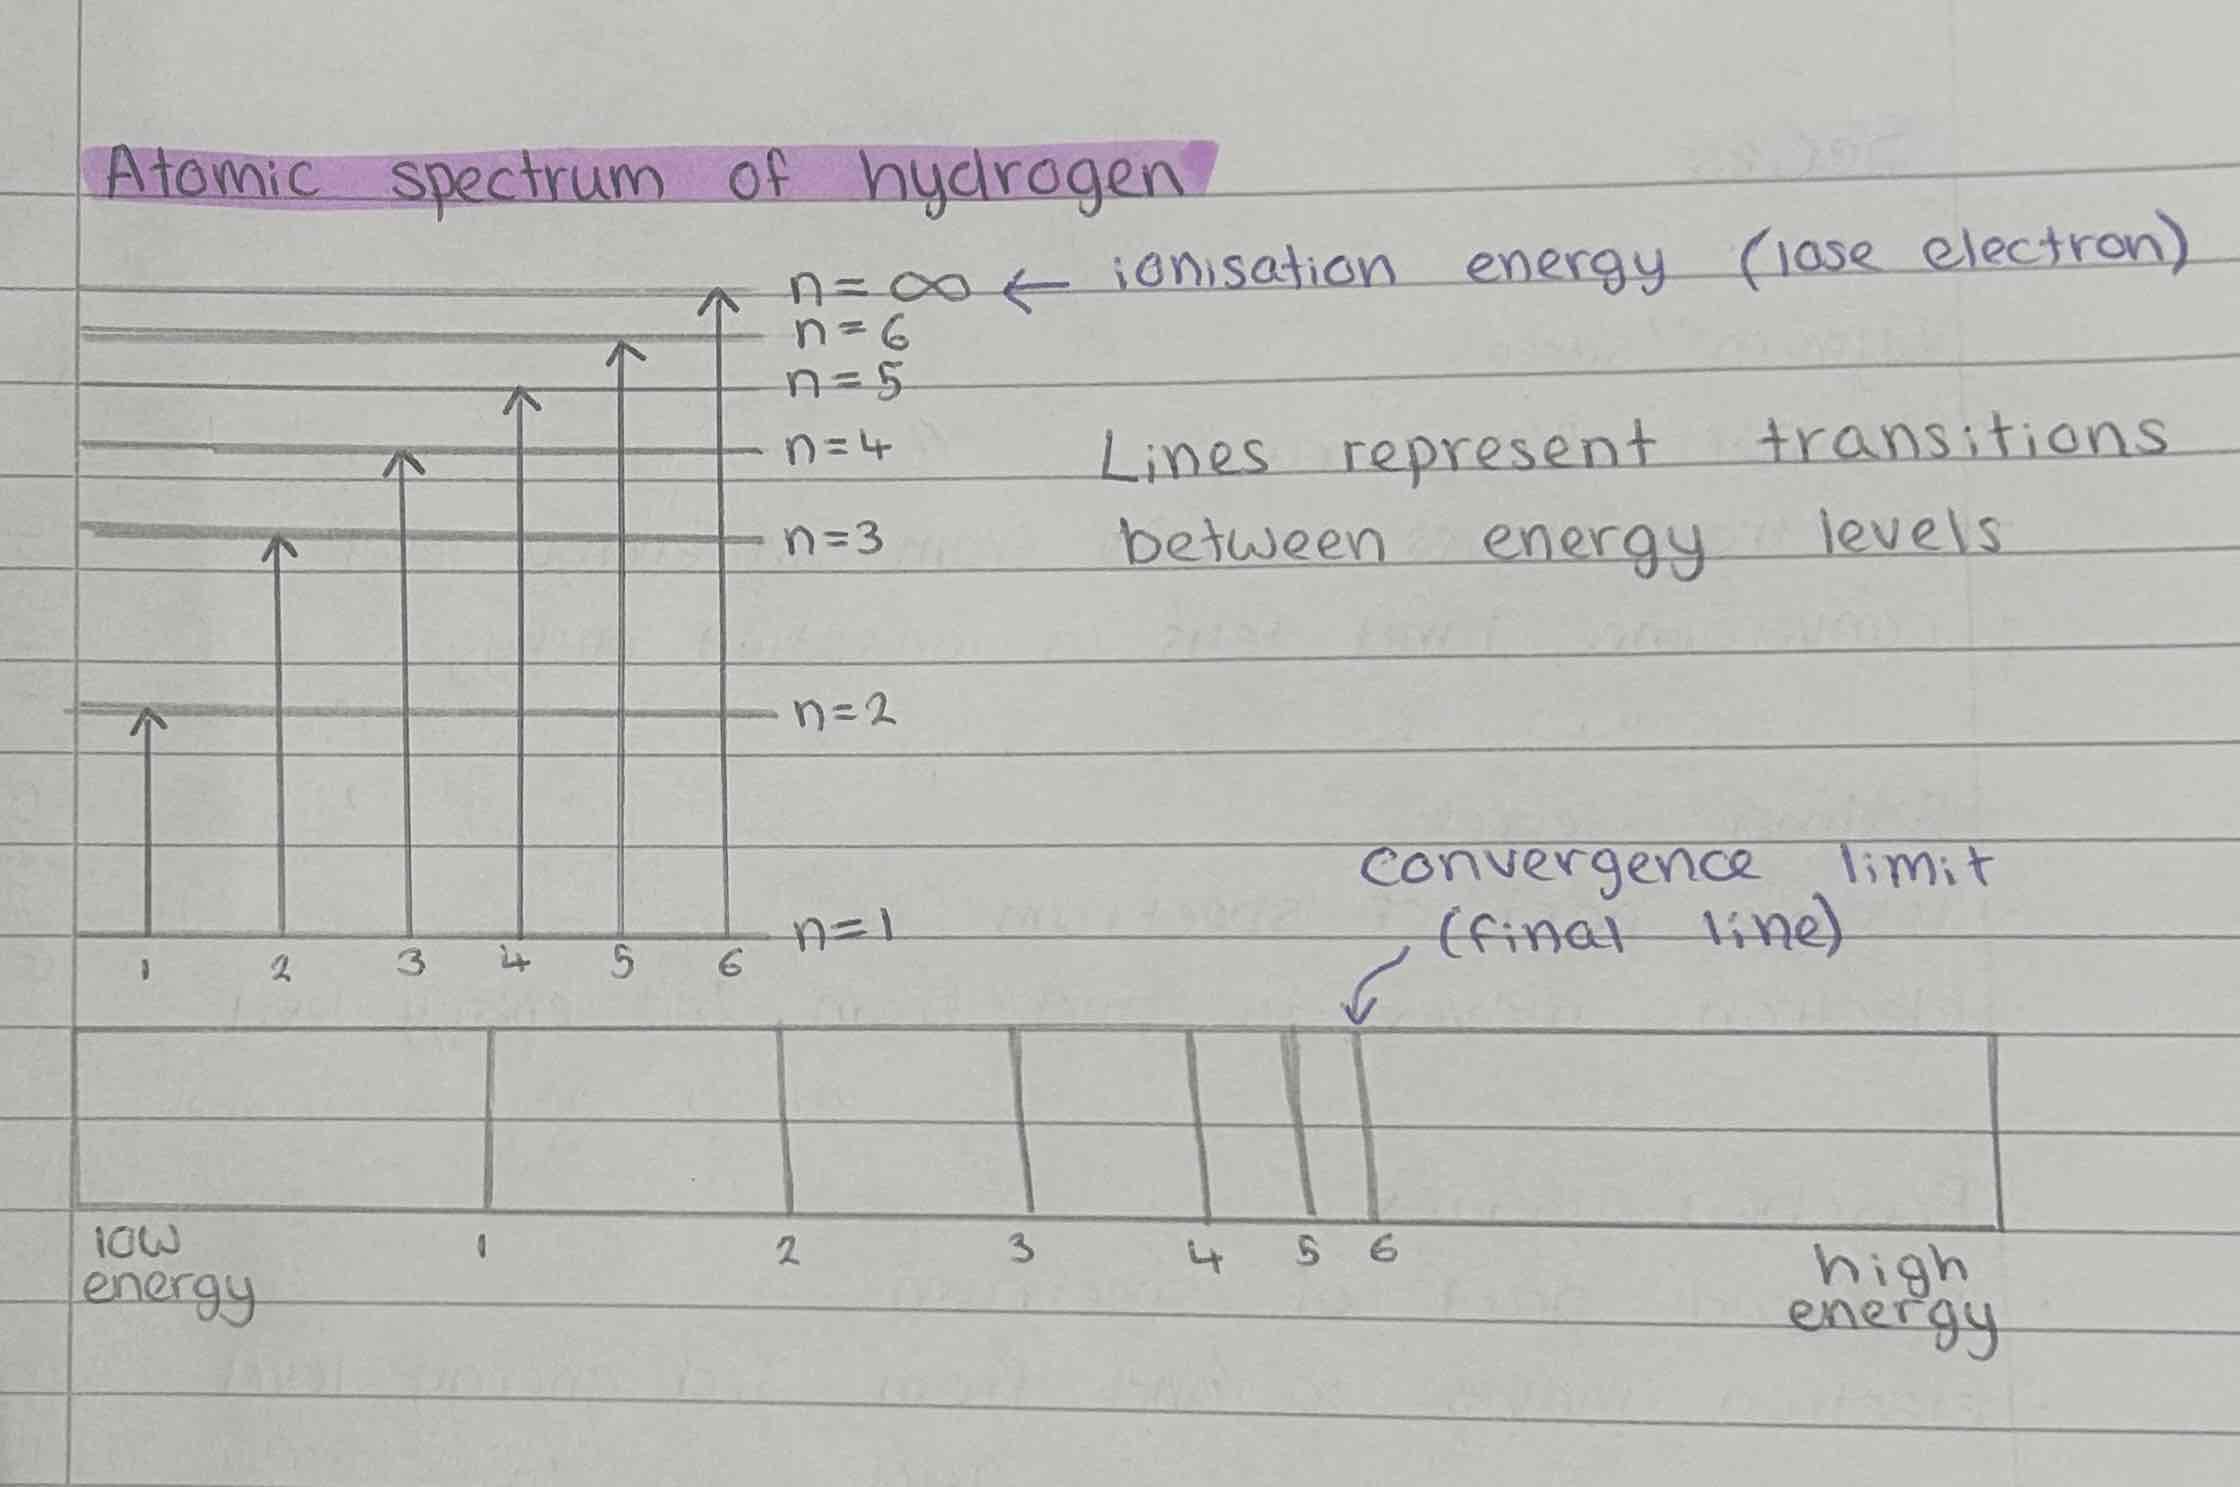 Atomic spectrum of hydrogen
n=∞ ← ionisation energy (lose electron)
n=6
n=5
n=4
Lines represent transitions
n=3
between energy levels
n=2
n=1
1 2 3 4 5 6
convergence limit
(final line)
1 2 3 4 5 6
low
energy
high
energy